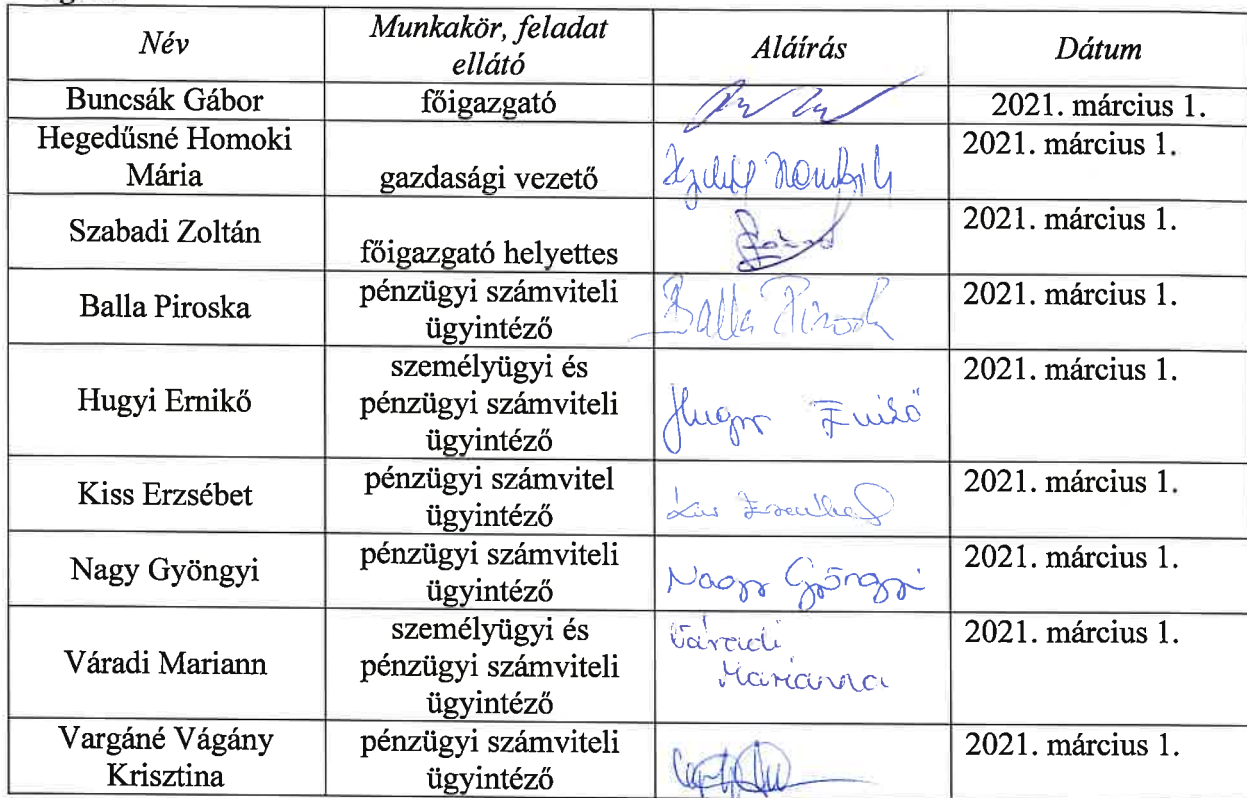 Név
Munkakör, feladat
ellátó
Aláírás
Dátum
Buncsák Gábor
főigazgató
2021. március 1.
Hegedűsné Homoki
Mária
gazdasági vezető
2021. március 1.
Szabadi Zoltán
főigazgató helyettes
2021. március 1.
Balla Piroska
pénzügyi számviteli
ügyintéző
Balla Piroska
2021. március 1.
Hugyi Ernikő
személyügyi és
pénzügyi számviteli
ügyintéző
Hugyi Enikő
2021. március 1.
Kiss Erzsébet
pénzügyi számvitel
ügyintéző
Kiss Erzsébet
2021. március 1.
Nagy Gyöngyi
pénzügyi számviteli
ügyintéző
Nagy Gyöngyi
2021. március 1.
Váradi Mariann
személyügyi és
pénzügyi számviteli
ügyintéző
Váradi
Marianna
2021. március 1.
Vargáné Vágány
Krisztina
pénzügyi számviteli
ügyintéző
2021. március 1.